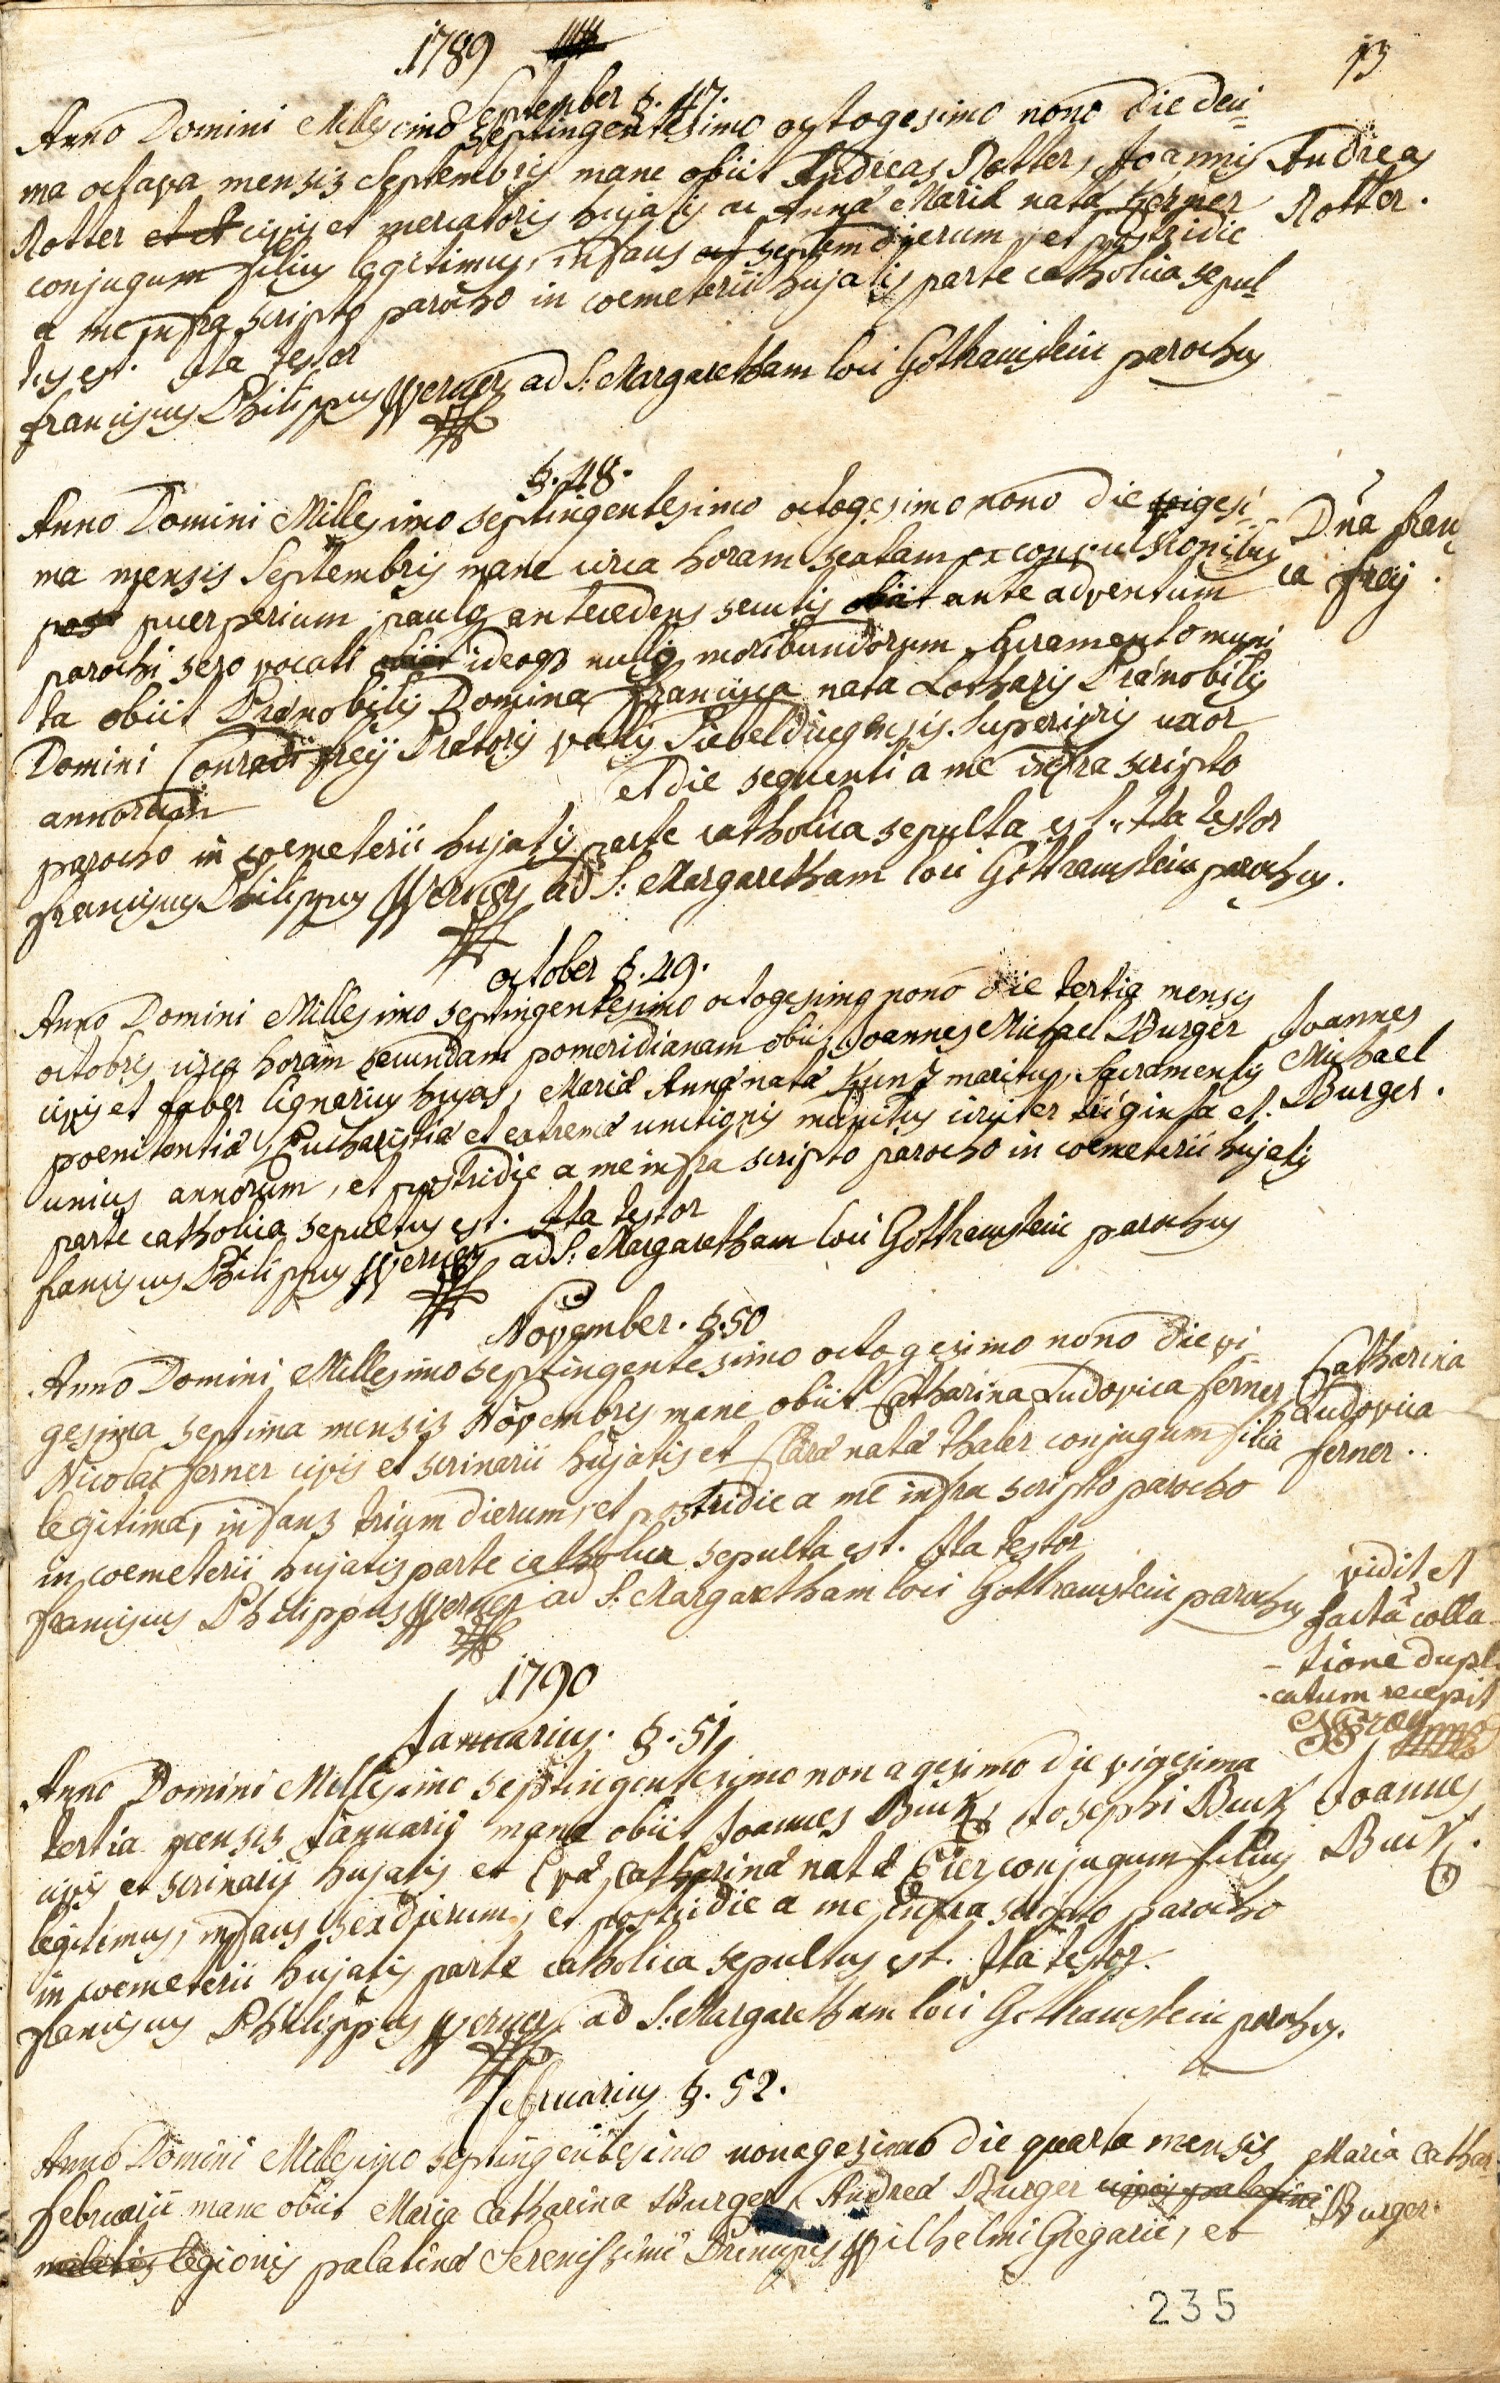 1789
13
September §. 47.
Anno Domini Millesimo septingentesimo octogesimo nono die deci=
ma octava mensis Septembris mane obiit Andreas Rotter, Joannis
Andreas
Rotter civis et mercatoris hujatis ac Annâ Mariâ natâ Kerner
Rotter.
conjugum filius legitimus, infans septem dierum, et postridie
a me infra scripto parocho in coemeterii hujatis parte catholica sepul
tus est. Ita testor
Franciscus Philippus Werner ad S: Margaretham loci Gothramstein parochus
§. 48.
Anno Domini Millesimo septingentesimo octogesimo nono die vigesi-
Dña Fran
ma mensis Septembris mane circa horam sextam ex convulsionibus
ca Frey.
post puerperium paulo antecedens secutis ante adventum
parochi sero vocati ideoq nullo moribundorum sacramento muni
ta obiit Prænobilis Domina Francisca nata Lotharis Prænobilis
Domini Conradi Freÿ Prætoris vallis Siebeldingensis superioris uxor
annorum et die sequenti a me infra scripto
parocho in coemeterii hujatis parte catholica sepulta est. Ita testor
Franciscus Philippus Werner ad S: Margaretham loci Gothramstein parochus.
October §. 49.
Anno Domini Millesimo septingentesimo octogesimo nono die tertia mensis
octobris circa horam secundam pomeridianam obiit Joannes Michael Burger
Joannes
civis et faber lignarius hujas, Mariâ Annâ natâ Kunz maritus, Sacramentis
Michael
poenitentiâ, Eucharistiâ et extremâ unctionis munitus circiter triginta et
Burger.
unius annorum, et postridie a me infra scripto parocho in coemeterii hujatis
parte catholica sepultus est. Ita testor
Franciscus Philippus Werner ad S: Margaretham loci Gothramstein parochus
November. §. 50
Anno Domini Millesimo septingentesimo octogesimo nono die vi
Catharina
gesima septima mensis Novembris mane obiit Catharina Ludovica Ferner,
Ludovica
Nicolai Ferner civis et scrinarii hujatis et Clarâ natâ Thaler conjugum filia
Ferner.
legitima, infans trium dierum, et postridie a me infra scripto parocho
in coemeterii hujatis parte catholica sepulta est. Ita testor
Franciscus Philippus Werner ad S. Margaretham loci Gothramstein parochus
vidit et
factâ colla-
-tione dupl
-catum recepit
1790
Januarius. §. 51.
Anno Domini Millesimo septingentesimo nonagesimo die vigesima
tertia mensis Januarij mane obiit Joannes Buck, Josephi Buck
Joannes
civis et scrinarij hujatis et Evâ Catharinâ natâ Eier conjugum filius
Buck.
legitimus, infans sex dierum, et postridie a me infra scripto parocho
in coemeterii hujatis parte catholica sepultus est. Ita testor.
Franciscus Philippus Werner ad S: Margaretham loci Gothramstein parochus.
Februarius §. 52.
Anno Domini Millesimo septingentesimo nonagesimo die quarta mensis
Maria Cathar
Februarii mane obiit Maria Catharina Burger, Andreâ Burger civis palatini
Burger.
militis legionis palatinâ Serenissimi Principis Wilhelmi Gregarii, et
235